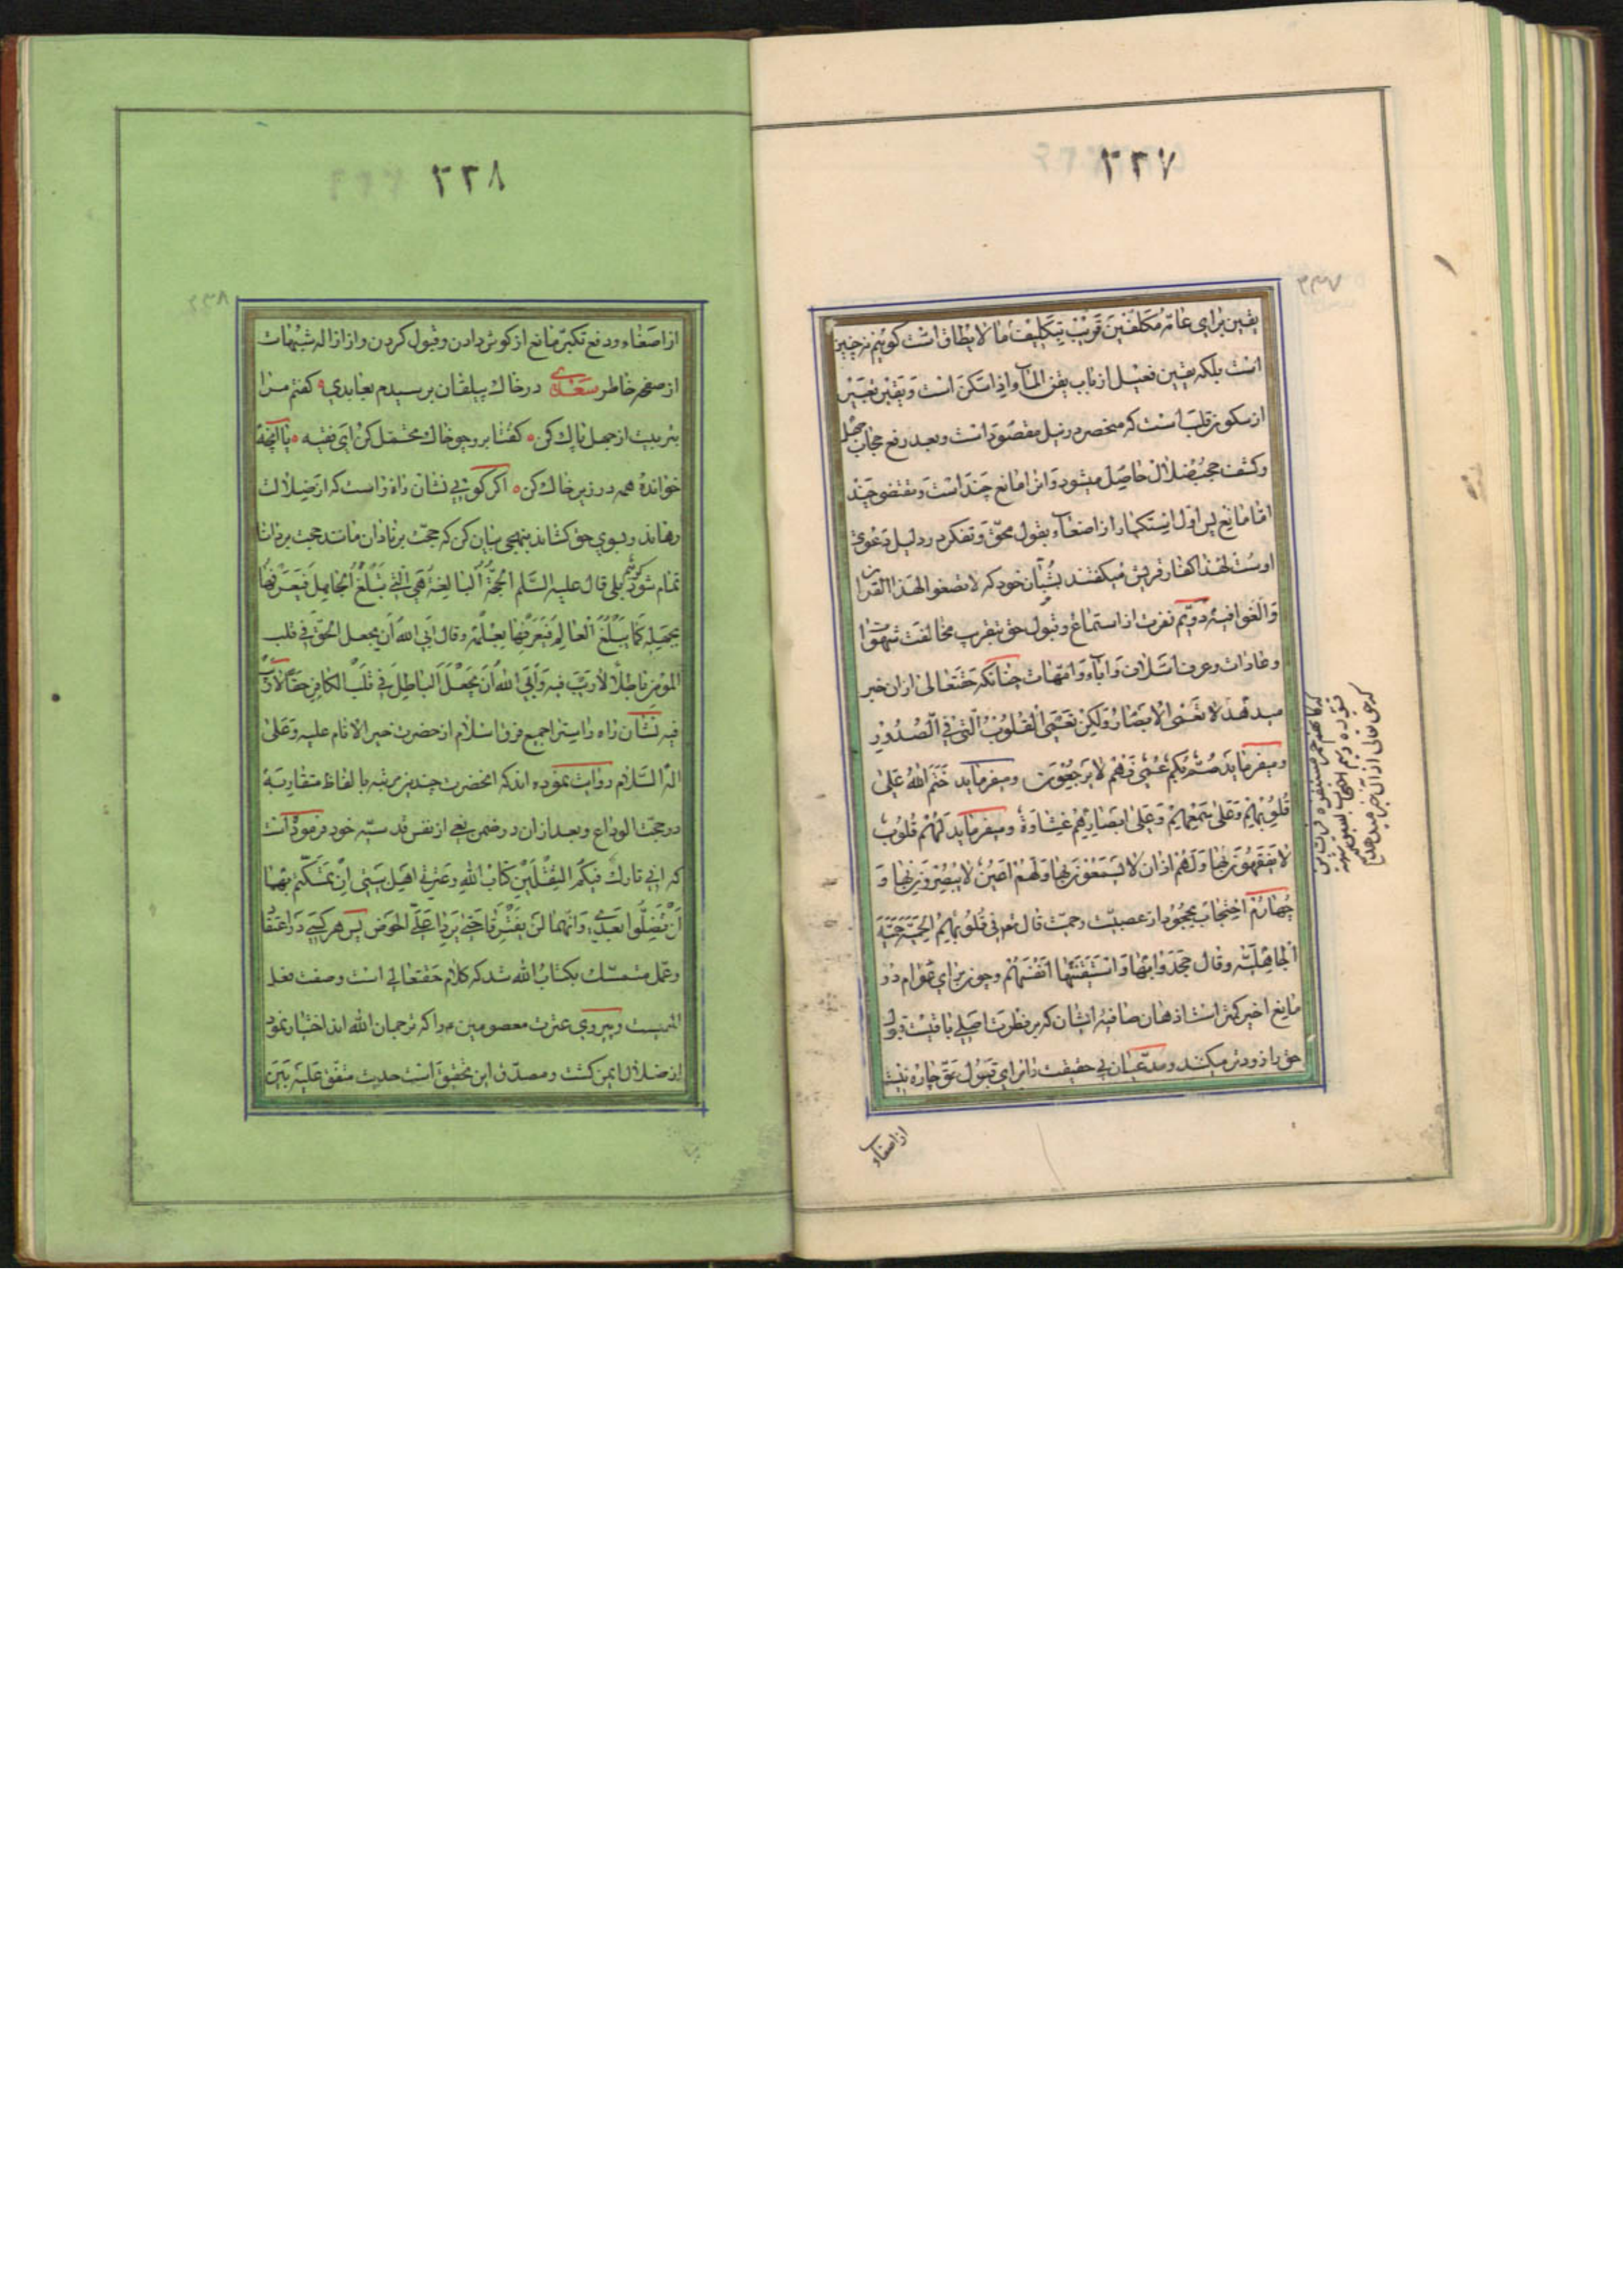 ۲۳۷
یقین برای عامّه مکلفین قریب بتکلیف ما لا یطاق است گوئیم نه چنین
است بلکه یقین فعیل از باب یقن الماء اذا سکن است و یقین تعبیر
از سکون قلب است که منحصر در نیل مقصود است و بعد رفع حجاب جهل
و کشف حجب ضلال حاصل میشود و انرا مانع چند است و مقتضی چند
امّا مانع پس اول استکبار از اصغاء بقول محقّ و تفکر در دلیل دعوی
اوست لهذا کفار قریش میگفتند بشبّان خود که لا تصغوا لهذا القران
و الغوا فیه دویّم نفرت از استماع و قبول حق بتقریب مخالفت شهوات
و عادات و عرف اسلاف و آباء و امّهات چنانکه حقتعالی ازان خبر
میدهد لا تعمی الابصار ولکن تعمی القلوب الّتی فی الصّدور
و میفرماید صمّ بکم عمی فهم لا یرجعون و میفرماید ختم الله علی
قلوبهم و علی سمعهم و علی ابصارهم غشاوة و میفرماید لهم قلوب
لا یفقهون بها و لهم اذان لا یسمعون بها و لهم اعین لا یبصرون بها و
چهارم احتجاب بجحود از عصبیّت و حمیّت قال تعم فی قلوبهم الحمیّة حمیّة
الجاهلیّة و قال جحدوا بها و استیقنتها انفسهم و چون برای عوام دو
مانع اخیر کمتر است اذهان صافیهٔ ایشان که بر فطرت اصلی باقیست قبول
حق را زودتر میکنند و مدّعیان بی حقیقت را برای قبول حق چاره نیست
از اصغاء
۲۳۸
از اصغاء و دفع تکبّر مانع از کوش دادن و قبول کردن و از ازاله شبهات
از صفحه خاطر سعدی در خاک بیلقان برسیدم بعابدی گفتم مرا
بتربیت از جهل پاک کن گفتا برو چو خاک محتمل کن ای فقیه یا آنچه
خوانده همه در زیر خاک کن اگر گوئی نشان راه راست که از ضلالت
رهاند و بسوی حق کشاند بنهجی بیان کن که حجّت بر نادان مانند حجت بر دانا
تمام شود گوئیم بلی قال علیه السّلم الحجّة البالغة هی الّتی تبلغ الجاهل فیعرفها
بجهله کما یبلغ العالم فیعرفها بعلمه و قال ابی الله ان یجعل الحقّ فی قلب
المؤمن باطلا لا ریب فیه و ابی الله ان یجعل الباطل فی قلب الکافر حقّا لا ریب
فیه نشان راه راست را جمیع فرق اسلام از حضرت خیر الانام علیه و علی
اله السّلام روایت نموده اند که انحضرت چندین مرتبه بالفاظ متقاربة
در حجّت الوداع و بعد ازان در ضمن نعی از نفس قدسیّه خود فرموده است
که انی تارک فیکم الثقلین کتاب الله و عترتی اهل بیتی ان تمسّکتم بهما
لن تضلّوا بعدی و انّهما لن یفترقا حتی یردا علیّ الحوض پس هر کسی در اعتقاد
و عمل متمسّک بکتاب الله شد که کلام حقتعالی است و صفت فعل
اوست و پیروی عترت معصومین ع را که ترجمان الله اند اختیار نمود
از ضلال ایمن گشت و مصدّق این تحقیق است حدیث متفق علیه بین